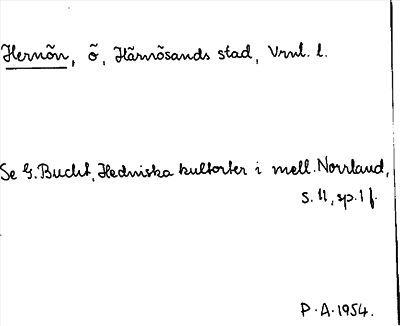 Hernön, ö, Härnösands stad, Vrnl. l.
Se G. Bucht, Hedniska kultorter i mell. Norrland,
s. 11, sp. 1 f.
P. A. 1954.